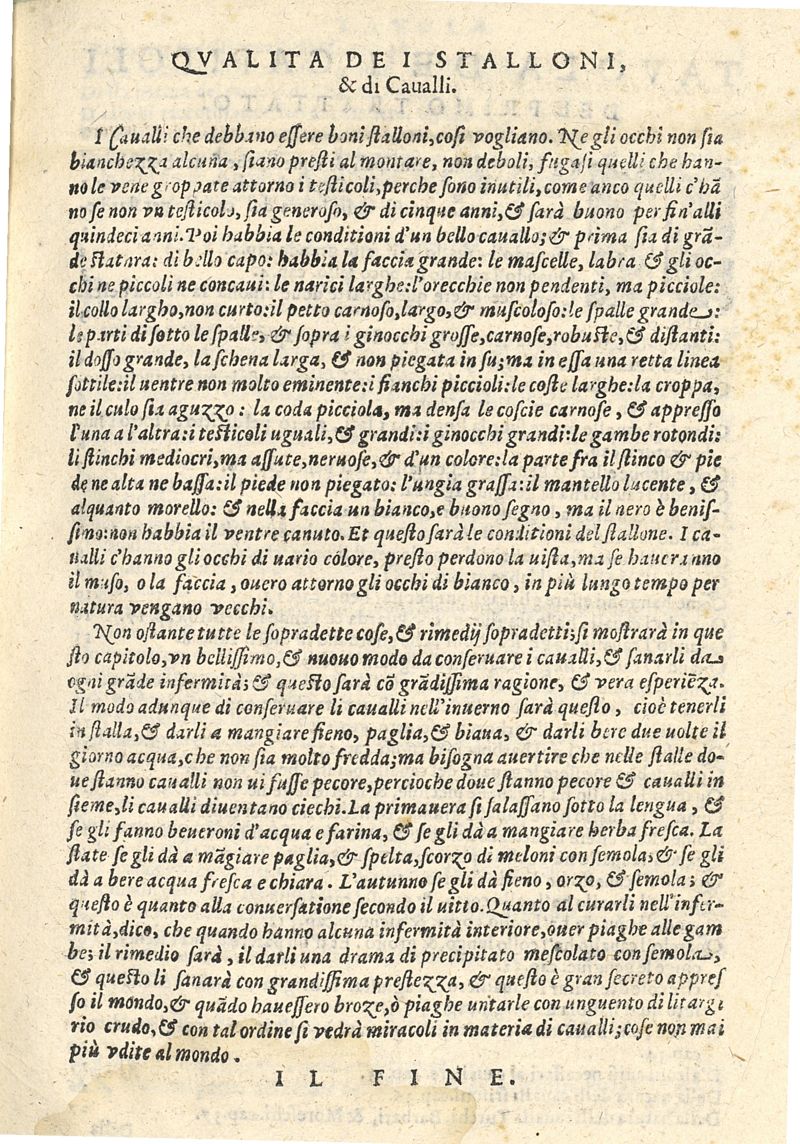 QVALITA DE I STALLONI,
& di Caualli.
I Caualli che debbano essere boni stalloni, cosi vogliano. Ne gli occhi non sia
bianchezza alcuna, siano presti al montare, non deboli, fugasi quelli che han-
no le vene groppate attorno i testicoli, perche sono inutili, come anco quelli c'hã
no se non vn testicolo, sia generoso, & di cinque anni, & sarà buono per fin'alli
quindeci anni. Poi habbia le conditioni d'un bello cauallo; & prima sia di grã-
de statara: di bello capo: habbia la faccia grande: le mascelle, labra & gli oc-
chi ne piccoli ne concaui: le narici larghe: l'orecchie non pendenti, ma picciole:
il collo largho, non curto: il petto carnoso, largo, & muscoloso: le spalle grande:
le parti di sotto le spalle, & sopra i ginocchi grosse, carnose, robuste, & distanti:
il dosso grande, la schena larga, & non piegata in su; ma in essa una retta linea
sottile: il uentre non molto eminente: i fianchi piccioli: le coste larghe: la croppa,
ne il culo sia aguzzo: la coda picciola, ma densa le coscie carnose, & appresso
l'una a l'altra: i testicoli uguali, & grandi: i ginocchi grandi: le gambe rotondi:
li stinchi mediocri, ma assute, neruose, & d'un colore: la parte fra il stinco & pie
de ne alta ne bassa: il piede non piegato: l'ungia grassa: il mantello lucente, &
alquanto morello: & nella faccia un bianco, e buono segno, ma il nero è benis-
simo: non habbia il ventre canuto. Et questo sarà le conditioni del stallone. I ca-
ualli c'hanno gli occhi di uario colore, presto perdono la uista, ma se haueranno
il muso, o la faccia, ouero attorno gli occhi di bianco, in più lungo tempo per
natura vengano vecchi.
Non ostante tutte le sopradette cose, & rimedij sopradetti; si mostrarà in que
sto capitolo, vn bellissimo, & nuouo modo da conseruare i caualli, & sanarli da
ogni grãde infermità; & questo sarà cõ grãdissima ragione, & vera esperiẽza.
Il modo adunque di conseruare li caualli nell'inuerno sarà questo, cioè tenerli
in stalla, & darli a mangiare fieno, paglia, & biaua, & darli bere due uolte il
giorno acqua, che non sia molto fredda; ma bisogna auertire che nelle stalle do-
ue stanno caualli non ui fusse pecore, percioche doue stanno pecore & caualli in
sieme, li caualli diuentano ciechi. La primauera si salassano sotto la lengua, &
se gli fanno beueroni d'acqua e farina, & se gli dà a mangiare herba fresca. La
state se gli dà a mãgiare paglia, & spelta, scorzo di meloni con semola, & se gli
dà a bere acqua fresca e chiara. L'autunno se gli dà fieno, orzo, & semola; &
questo è quanto alla conuersatione secondo il uitto. Quanto al curarli nell'infer-
mità, dico, che quando hanno alcuna infermità interiore, ouer piaghe alle gam
be; il rimedio sarà, il darli una drama di precipitato mescolato con semola,
& questo li sanarà con grandissima prestezza, & questo è gran secreto appres
so il mondo, & quãdo hauessero broze, ò piaghe untarle con unguento di litargi
rio crudo, & con tal ordine si vedrà miracoli in materia di caualli; cose non mai
più vdite al mondo.
IL FINE.